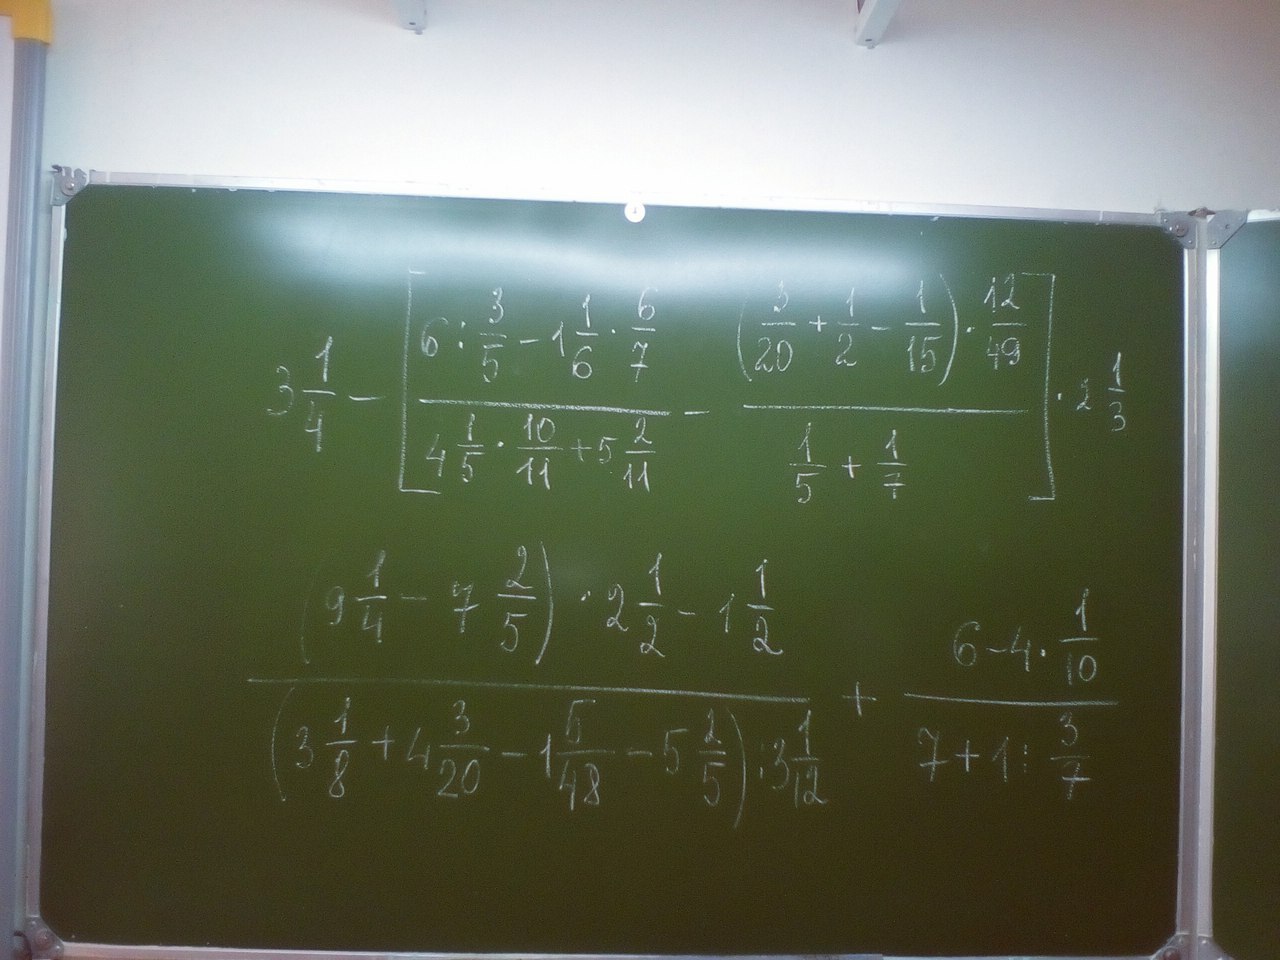 3 1/4 − [ (6 : 3/5 − 1 1/6 · 6/7) / (4 1/5 · 10/11 + 5 2/11) − ((3/20 + 1/2 − 1/15) · 12/49) / (1/5 + 1/7) ] · 2 1/3
((9 1/4 − 7 2/5) · 2 1/2 − 1 1/2) / ((3 1/8 + 4 3/20 − 1 5/48 − 5 2/5) : 3 1/12) + (6 − 4 · 1/10) / (7 + 1 : 3/7)